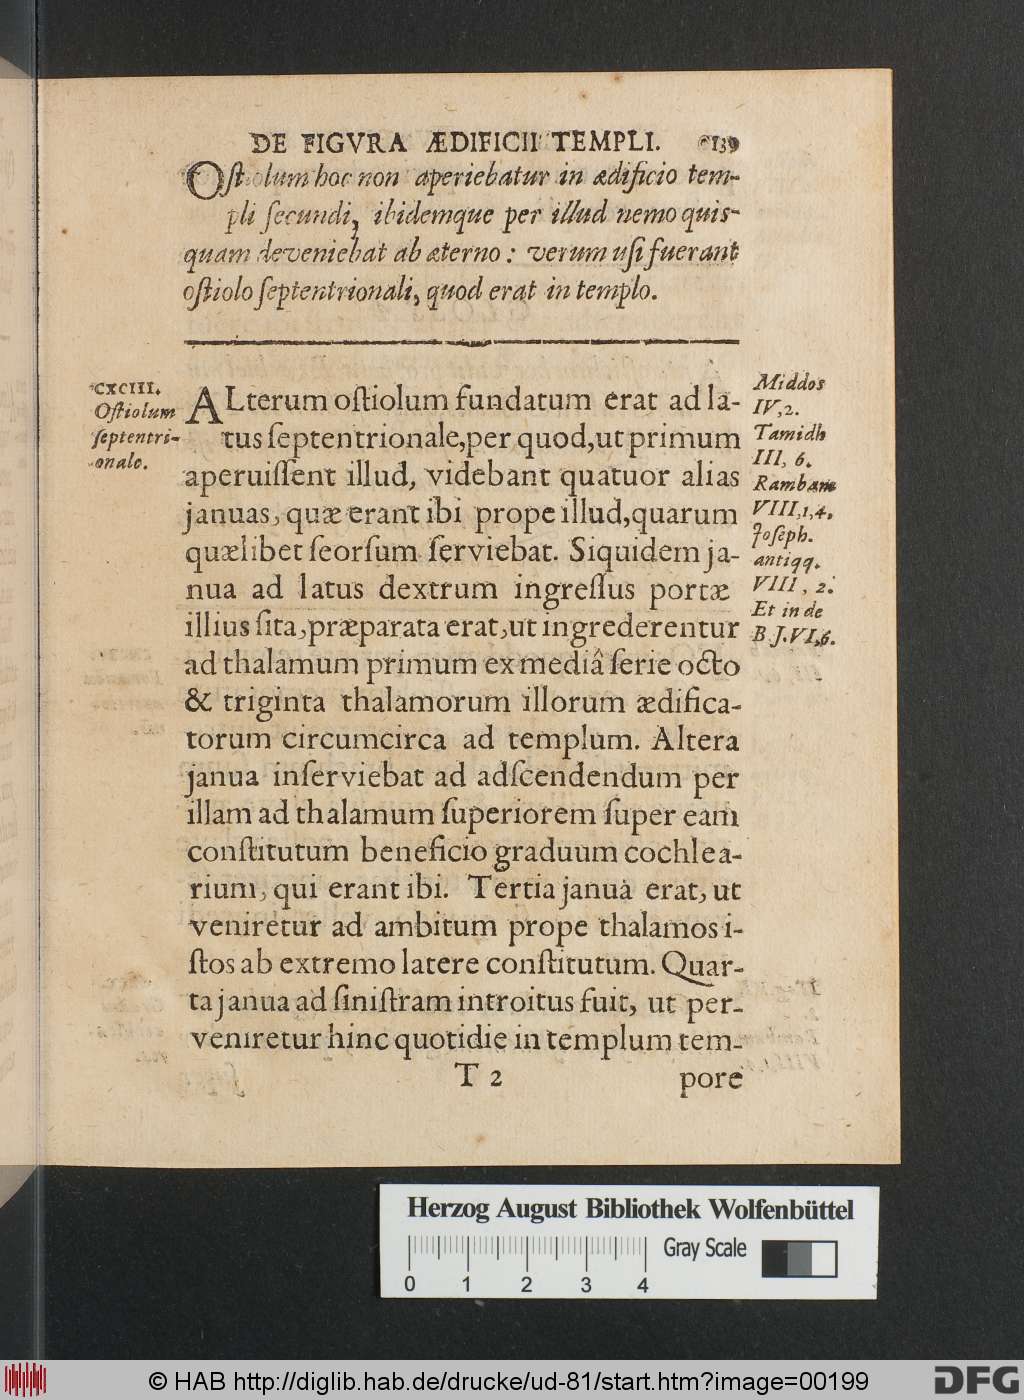 DE FIGVRA ÆDIFICII TEMPLI. 139
Oſtiolum hoc non aperiebatur in ædificio tem-
pli ſecundi, ibidemque per illud nemo quis-
quam deveniebat ab æterno: verum uſi fuerant
oſtiolo ſeptentrionali, quod erat in templo.
CXCIII.
Oſtiolum
ſeptentri-
onale.
ALterum oſtiolum fundatum erat ad la-
tus ſeptentrionale, per quod, ut primum
aperuiſſent illud, videbant quatuor alias
januas, quæ erant ibi prope illud, quarum
quælibet ſeorſum ſerviebat. Siquidem ja-
nua ad latus dextrum ingreſſus portæ
illius ſita, præparata erat, ut ingrederentur
ad thalamum primum ex mediâ ſerie octo
& triginta thalamorum illorum ædifica-
torum circumcirca ad templum. Altera
janua inſerviebat ad adſcendendum per
illam ad thalamum ſuperiorem ſuper eam
conſtitutum beneficio graduum cochlea-
rium, qui erant ibi. Tertia janua erat, ut
veniretur ad ambitum prope thalamos i-
ſtos ab extremo latere conſtitutum. Quar-
ta janua ad ſiniſtram introitus fuit, ut per-
veniretur hinc quotidie in templum tem-
T 2 pore
Middos
IV, 2.
Tamidh
III, 6.
Rambam
VIII, 1, 4.
Joſeph.
antiqq.
VIII, 2.
Et in de
B. J. VI, 6.
Herzog August Bibliothek Wolfenbüttel
Gray Scale
0 1 2 3 4
© HAB http://diglib.hab.de/drucke/ud-81/start.htm?image=00199
DFG